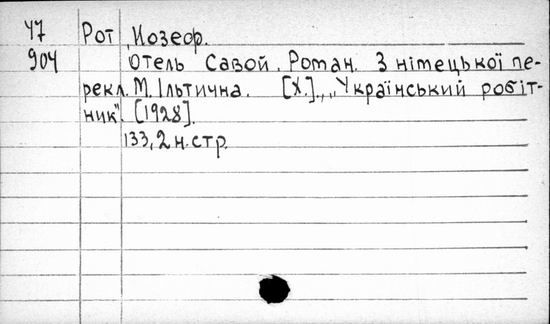 У7 Рот, Йозеф.
904 Отель Савой. Роман. З німецької пе-
рекл. М. Ільтична. [Х.]., „Український робіт-
ник". [1928].
133, 2 н. стр.